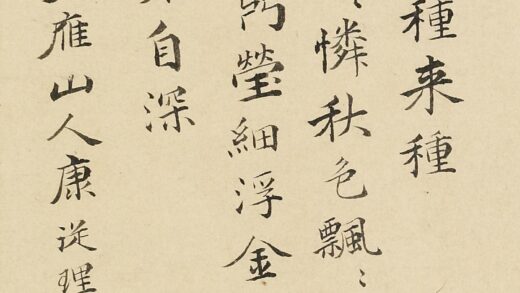 種来種
憐秋色飄〻
瑩細浮金
自深
雁山人康從理